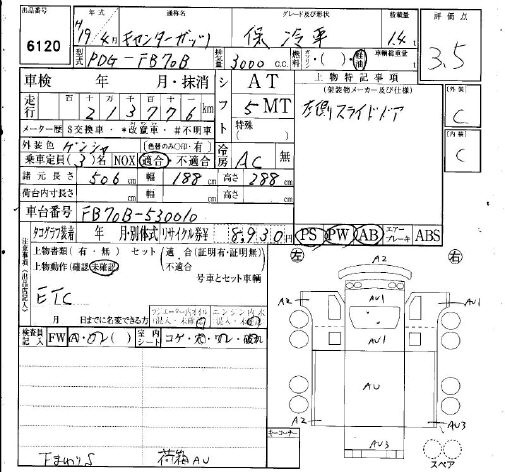 出品番号 年式 通称名 グレード及び形状 積載量 評価点
6120 H19年4月 キャンターガッツ 保冷車 1.4t 3.5
型式 PDG-FB70B 排気量 3000 C.C. 燃料 ガソリン・( )・軽油 車輌総重量 t
車検 年 月・抹消 シフト AT 上物特記事項 外装
(架装物メーカー及び仕様)
走行 百 十 万 千 百 十 一
213776 km 5MT 左側スライドドア C
メーター歴 S交換車・*改竄車・#不明車 特殊( )
外装色 ゲンシャ (色替のみ○印・有) 内装
乗車定員(3)名 NOX 適合・不適合 冷房 AC 無 C
諸元長さ 506cm 幅 188cm 高さ 288cm
荷台内寸長さ cm 幅 cm 高さ cm
車台番号 FB70B-530010
タコグラフ装着 年 月・別体式 リサイクル券¥ 8,930円 PS PW AB エアーブレーキ ABS
注意事項(出品店記入)
上物書類(有・無) セット(適合(証明有・証明無) 左 右
上物動作(確認・未確認) 不適合
号車とセット車輌 A2
ETC A2 AU1 AU1
月 日までに名変できる方
検査員記入 FW 室内シート コゲ・穴・ワレ・破れ AU1
AU
A2
AU3
キーコーナー AU3
下まわりS 荷箱AU スペア